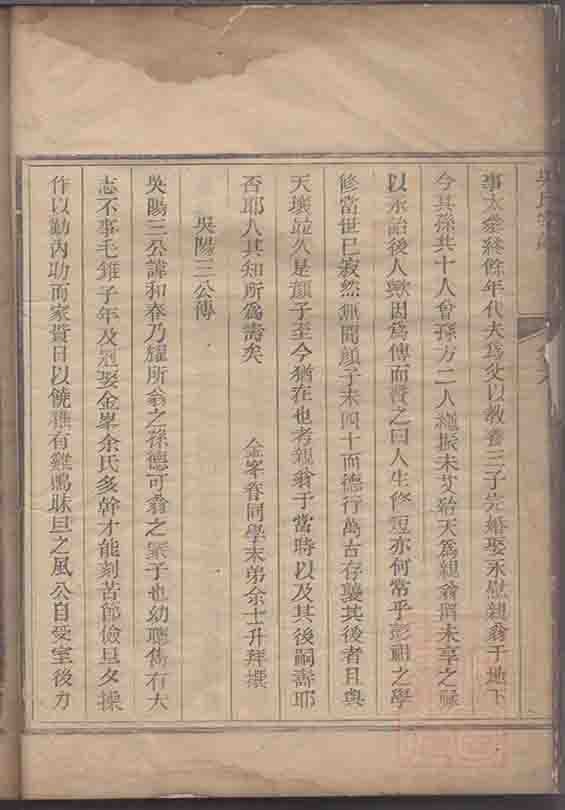 事太翁終餘年代夫為父以教養三子完婚娶永慰親翁于地下
今其孫共十人曾孫方二人繩振未艾殆天為親翁齊未享之祿
以永詒後人歟因為傳而贊之曰人生修短亦何常乎彭祖之學
修當世已寂然無聞顏子未四十而德行萬古存襲其後者且與
天壤竝久是顏子至今猶在也考親翁于當時以及其後嗣壽耶
否耶人其知所為壽矣 金峯眷同學末弟余士升拜撰
吳陽三公傳
吳陽三公諱和春乃耀所翁之孫德可翁之 子也幼聰雋有大
志不事毛錐子年及冠娶金峯余氏多幹才能刻苦節儉旦夕操
作以勤內功而家貲日以饒裕有雞鳴昧旦之風公自受室後力